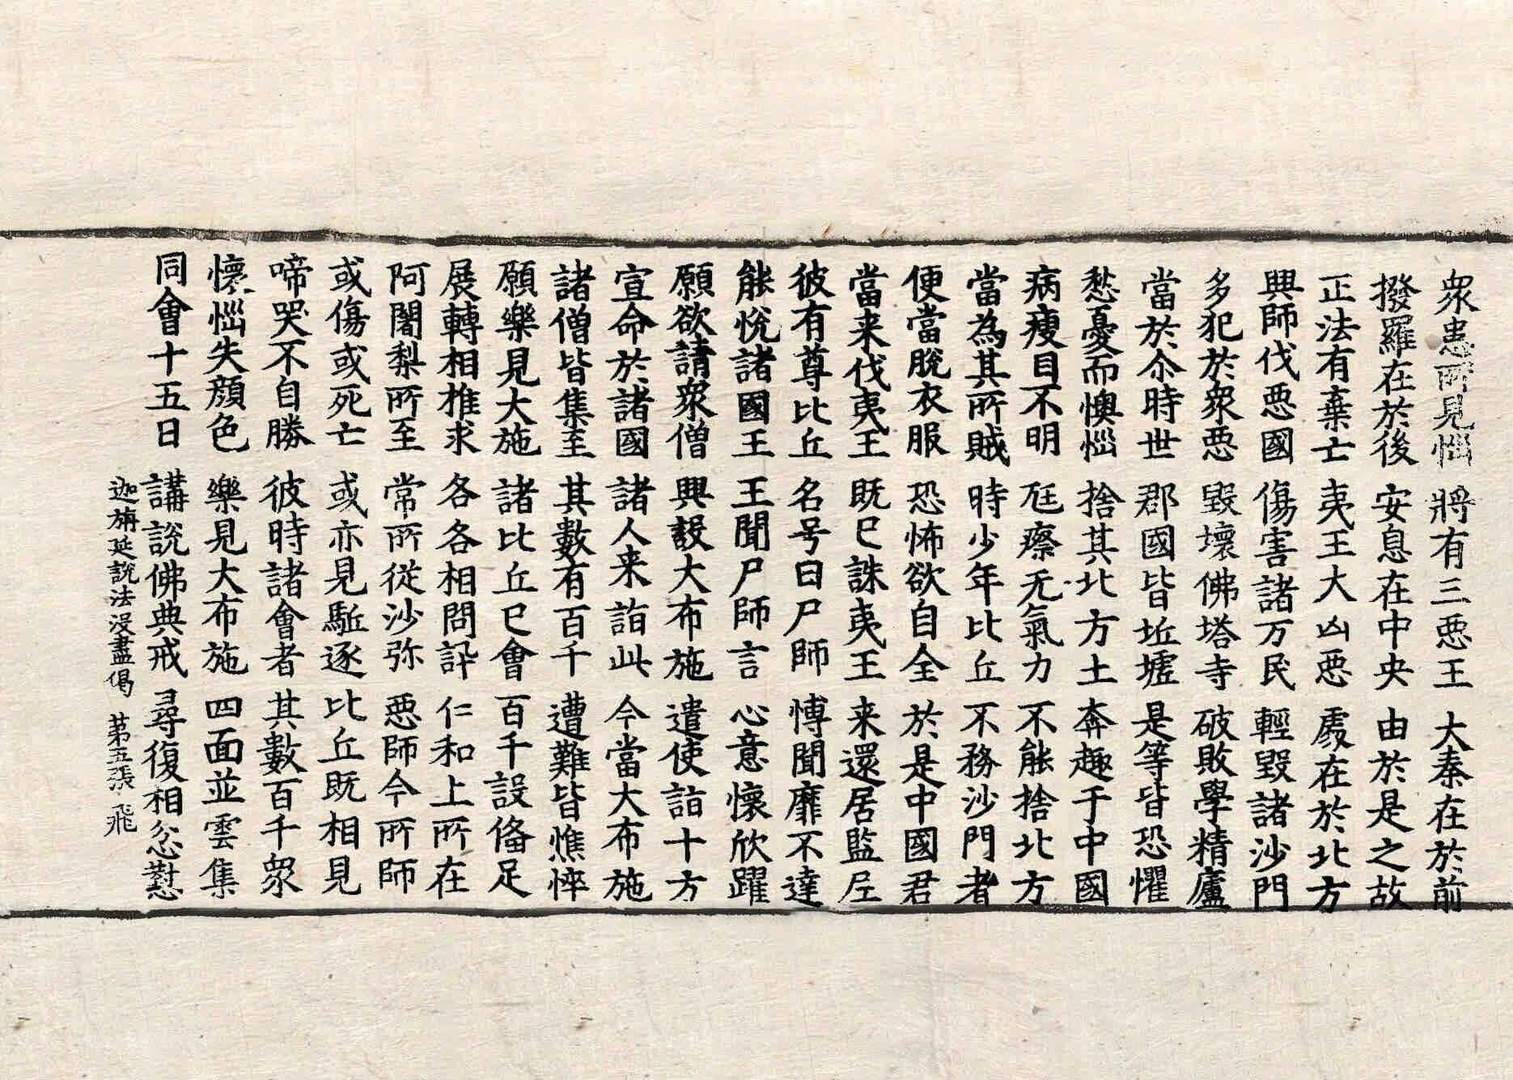 衆患所見惱 將有三惡王 大秦在於前
撥羅在於後 安息在中央 由於是之故
正法有棄亡 夷王大凶惡 處在於北方
興師伐惡國 傷害諸万民 輕毀諸沙門
多犯於衆惡 毀壞佛塔寺 破敗學精廬
當於尒時世 郡國皆坵墟 是等皆恐懼
愁憂而懊惱 捨其北方土 奔趣于中國
病瘦目不明 尫瘵无氣力 不能捨北方
當為其所賊 時少年比丘 不務沙門者
便當脫衣服 恐怖欲自全 於是中國君
當来伐夷王 既已誅夷王 来還居監
彼有尊比丘 名号曰尸師 博聞靡不達
能悅諸國王 王聞尸師言 心意懷欣躍
願欲請衆僧 興設大布施 遣使詣十方
宣命於諸國 諸人来詣此 今當大布施
諸僧皆集至 其數有百千 遭難皆憔悴
願樂見大施 諸比丘已會 百千設俻足
展轉相推求 各各相問訊 仁和上所在
阿闍梨所至 常所從沙弥 惡師今所師
或傷或死亡 或亦見駈逐 比丘既相見
啼哭不自勝 彼時諸會者 其數百千衆
懷惱失顏色 樂見大布施 四面並雲集
同會十五日 講說佛典戒 尋復相忿懟
迦旃延說法沒盡偈 第五張 飛